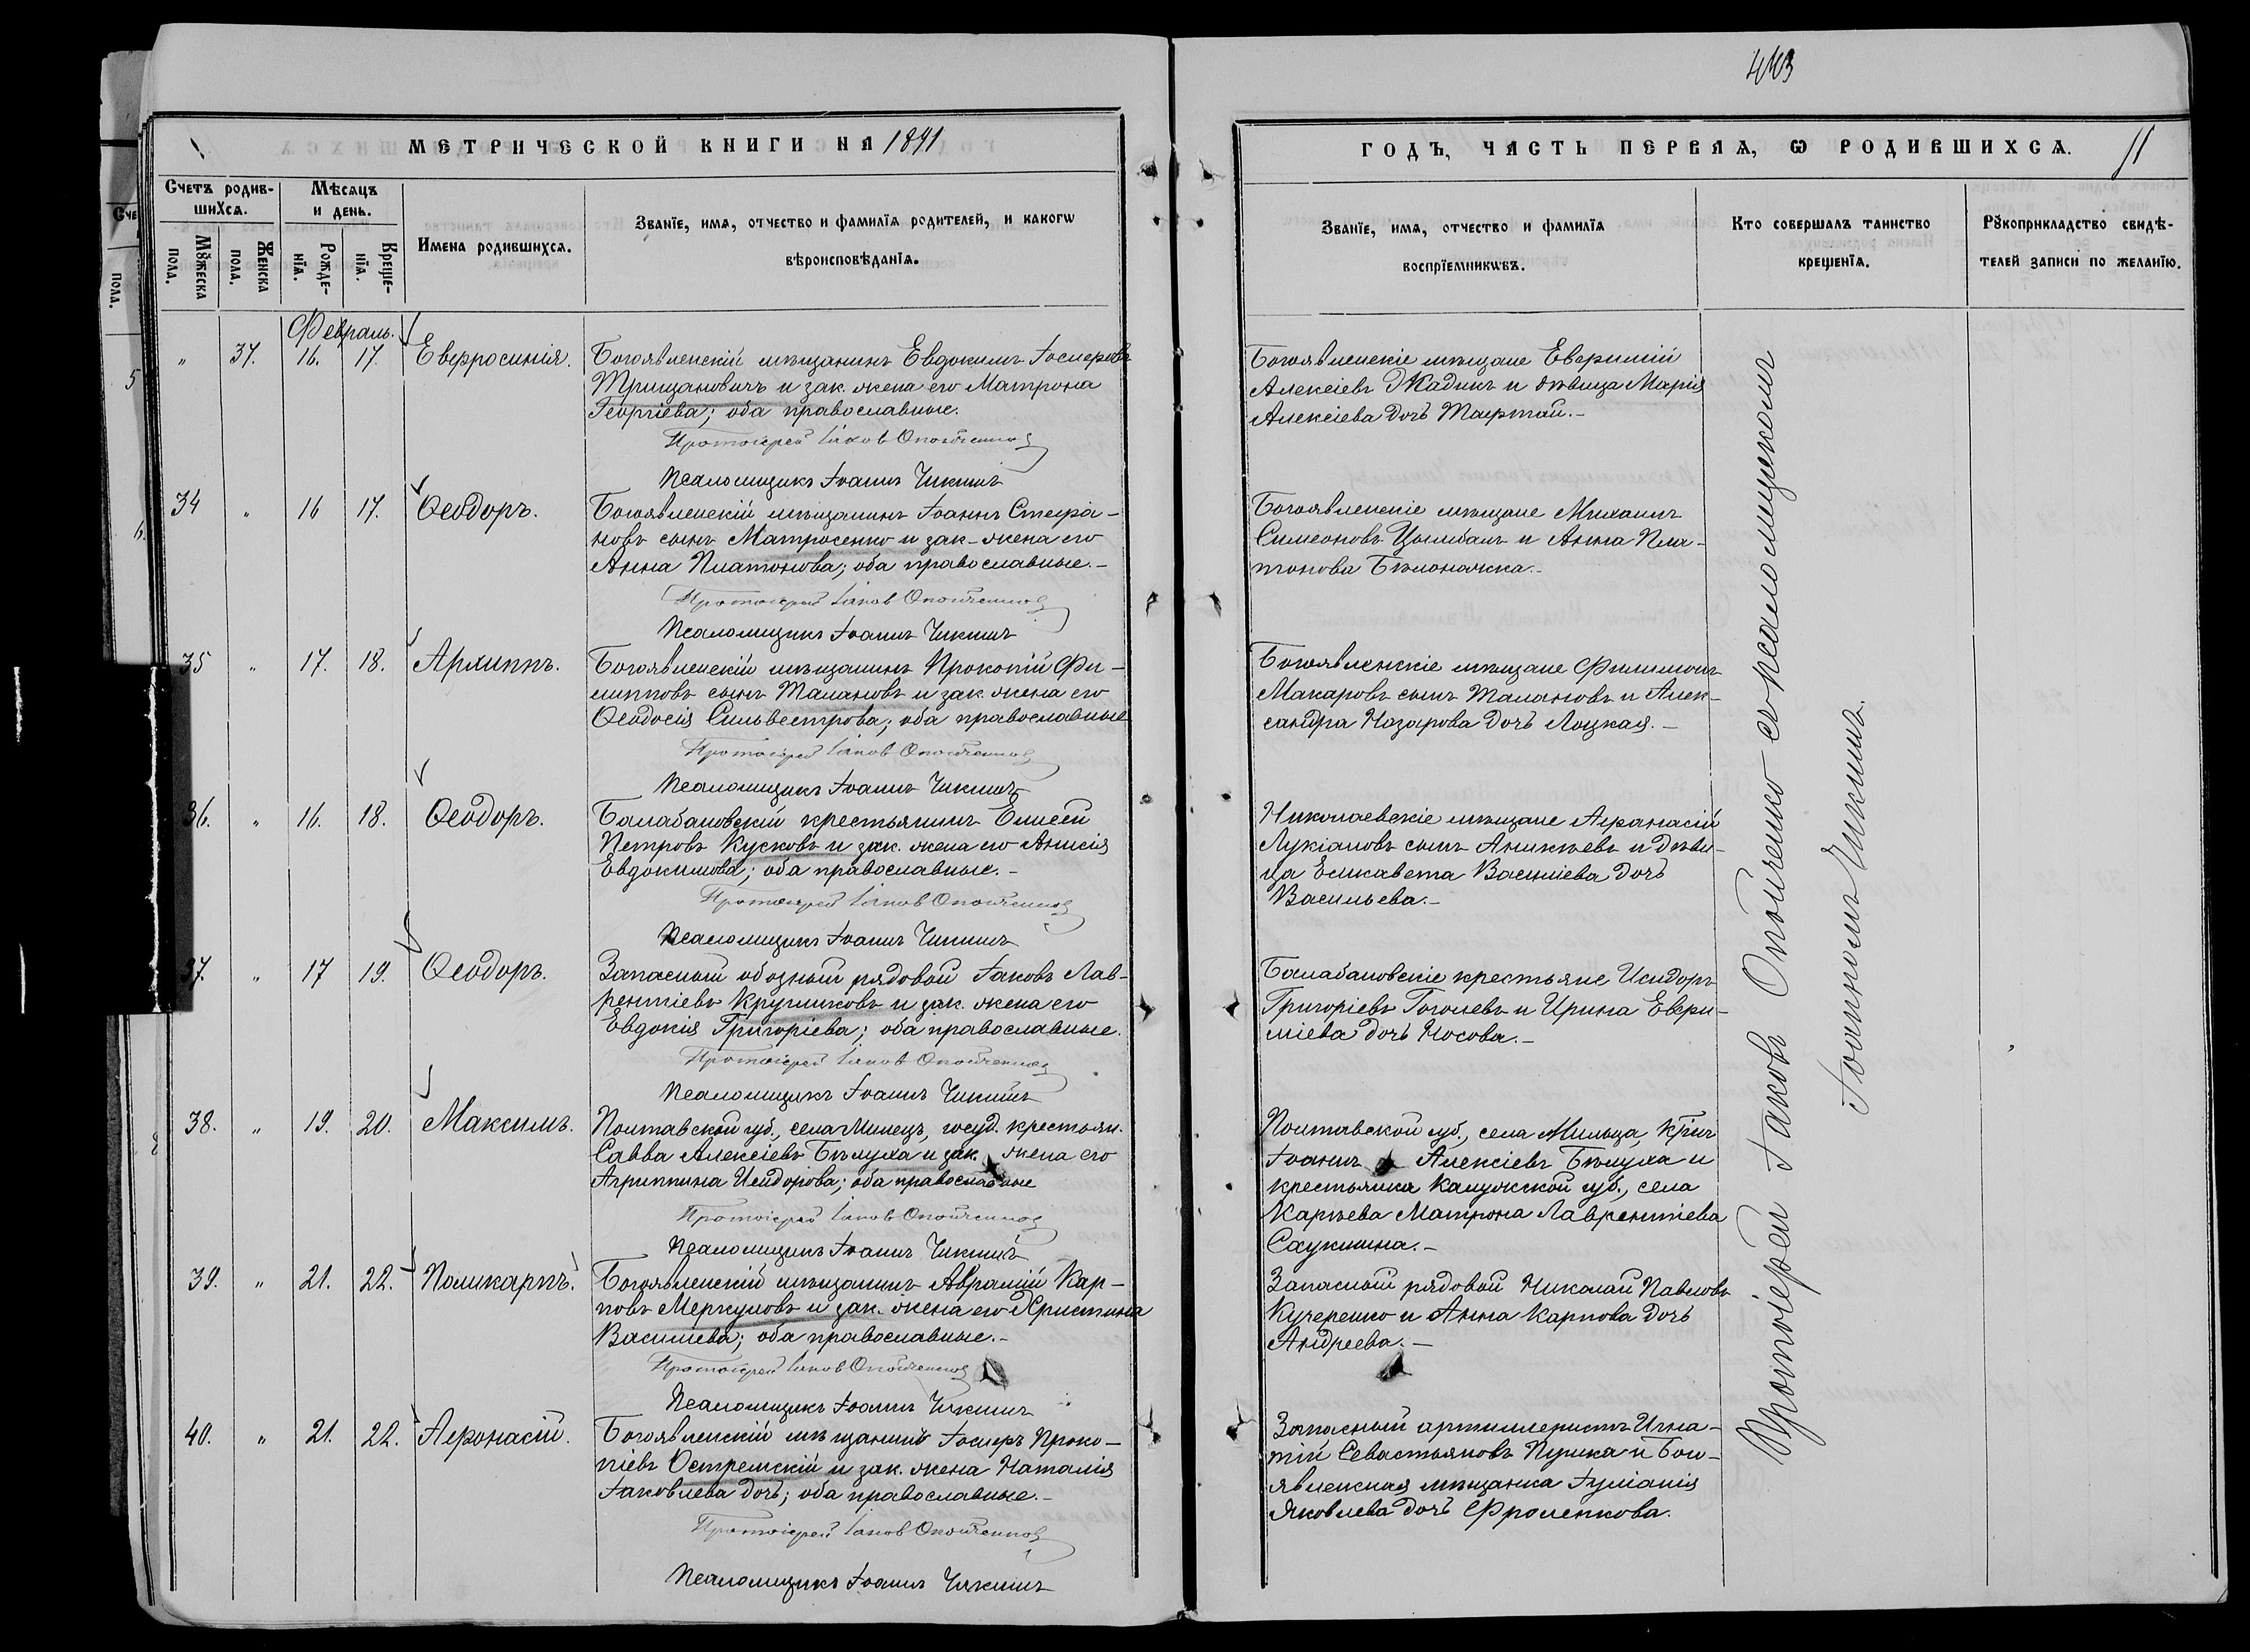 443
МЕТРИЧЕСКОЙ КНИГИ НА 1891
ГОДЪ, ЧАСТЬ ПЕРВАЯ, Ѡ РОДИВШИХСѦ.
11
Счетъ родив-
шихсѧ.
Мѣсѧцъ
и день.
Мꙋжеска
пола.
Женска
пола.
Рожде-
нїѧ.
Креще-
нїѧ.
Имена родившихсѧ.
Званїе, имѧ, отчество и фамилїѧ родителей, и какогѡ
вѣроисповѣданїѧ.
Званїе, имѧ, отчество и фамилїѧ
воспрїемникѡвъ.
Кто совершалъ таинство
крещенїѧ.
Рꙋкоприкладство свидѣ-
телей записи по желанїю.
Февраль.
" 37. 16. 17. Евфросинія.
Богоявленскій мѣщанинъ Евдокимъ Іосифовъ
Трищановичъ и зак. жена его Матрона
Георгіева; оба православные.
Протоіерей Іаковъ Опойченко
Псаломщикъ Іоаннъ Чикинъ
Богоявленскіе мѣщане Евфимій
Алексіевъ Жадикъ и дѣвица Марія
Алексіева дочь Тафтай.-
34 " 16 17. Ѳеодоръ.
Богоявленскій мѣщанинъ Іоаннъ Стефа-
новъ сынъ Матросенко и зак. жена его
Анна Платонова; оба православные.-
Протоіерей Іаковъ Опойченко
Псаломщикъ Іоаннъ Чикинъ
Богоявленскіе мѣщане Михаилъ
Симеоновъ Цымбалъ и Анна Пла-
тонова Бѣлоножка.-
35 " 17. 18. Архиппъ.
Богоявленскій мѣщанинъ Прокопій Фи-
липповъ сынъ Талановъ и зак. жена его
Ѳеодосія Сильвестрова; оба православные
Протоіерей Іаковъ Опойченко
Псаломщикъ Іоаннъ Чикинъ
Богоявленскіе мѣщане Филимонъ
Макаровъ сынъ Талановъ и Алек-
сандра Назарова дочь Лоцкая.-
36. " 16. 18. Ѳеодоръ.
Балабановскій крестьянинъ Елисей
Петровъ Кусковъ и зак. жена его Анисія
Евдокимова; оба православные.-
Протоіерей Іаковъ Опойченко
Псаломщикъ Іоаннъ Чикинъ
Николаевскіе мѣщане Афанасій
Лукіановъ сынъ Аникѣевъ и дѣви-
ца Елисавета Василіева дочь
Васильева.-
37. " 17 19. Ѳеодоръ.
Запасный обозный рядовой Іаковъ Лав-
рентіевъ Кругликовъ и зак. жена его
Евдокія Григоріева; оба православные.
Протоіерей Іаковъ Опойченко
Псаломщикъ Іоаннъ Чикинъ
Балабановскіе крестьяне Исидоръ
Григоріевъ Гоголевъ и Ирина Евфи-
міева дочь Носова.-
38. " 19. 20. Максимъ.
Полтавской губ., села Милецъ, госуд. крестьян.
Савва Алексіевъ Бѣлуха и зак. жена его
Агриппина Исидорова; оба православные
Протоіерей Іаковъ Опойченко
Псаломщикъ Іоаннъ Чикинъ
Полтавской губ., села Мильца, кр-нъ
Іоаннъ Алексіевъ Бѣлуха и
крестьянка Калужской губ., села
Карѣева Матрона Лаврентіева
Саукшина.-
39. " 21. 22. Поликарпъ.
Богоявленскій мѣщанинъ Аврамій Кар-
повъ Меркуловъ и зак. жена его Христина
Василіева; оба православные.-
Протоіерей Іаковъ Опойченко
Псаломщикъ Іоаннъ Чикинъ
Запасный рядовой Николай Павловъ
Кучеренко и Анна Карпова дочь
Андреева.-
40. " 21. 22. Афонасій.
Богоявленскій мѣщанинъ Іосифъ Проко-
піевъ Остремскій и зак. жена Наталія
Іаковлева дочь; оба православные.-
Протоіерей Іаковъ Опойченко
Псаломщикъ Іоаннъ Чикинъ
Запасный артиллеристъ Игна-
тій Севастьяновъ Пушка и Бого-
явленская мѣщанка Іуліанія
Яковлева дочь Фроленкова.
Протоіерей Іаковъ Опойченко съ псаломщикомъ
Іоанномъ Чикинъ.